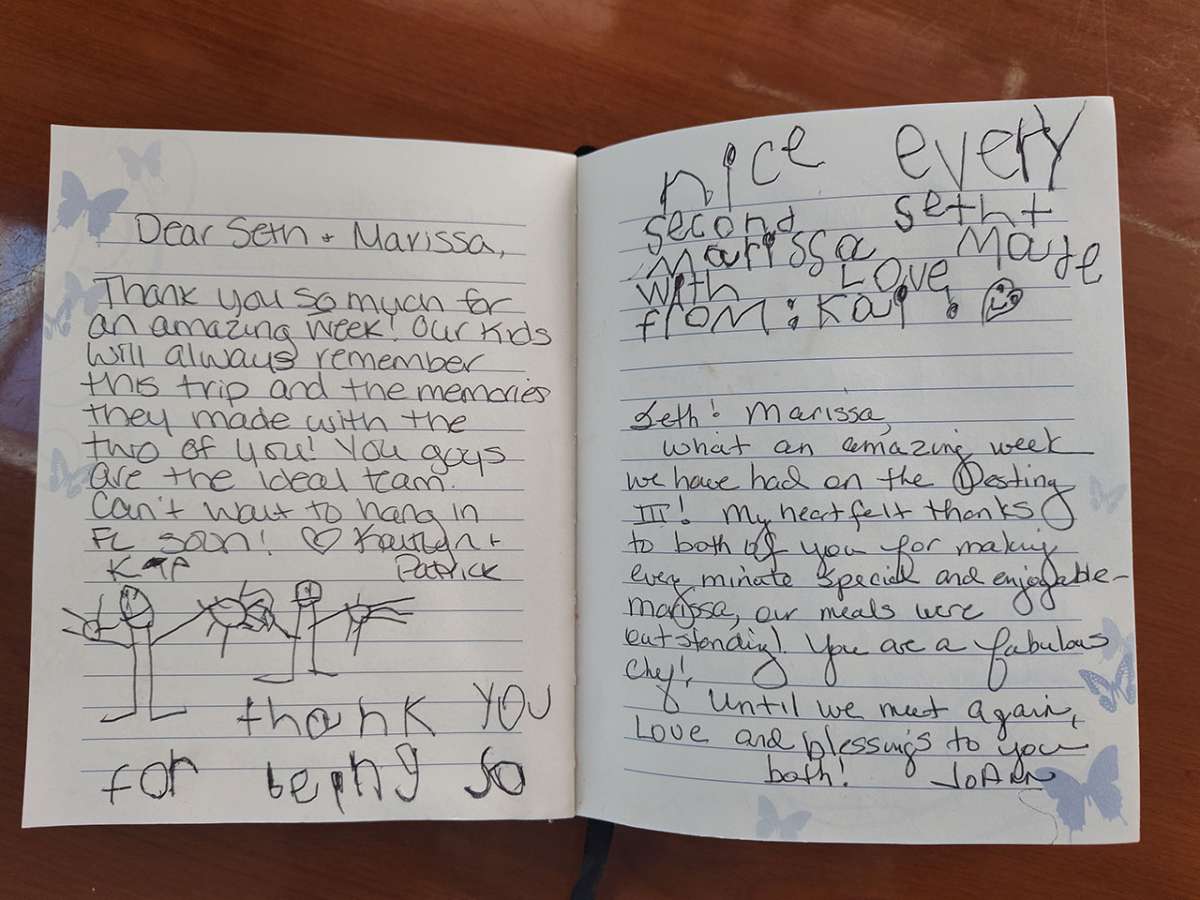 Dear Seth + Marissa,
Thank you so much for
an amazing week! Our kids
will always remember
this trip and the memories
they made with the
two of you! You guys
are the ideal team.
Can't wait to hang in
FL soon! ♡ Kaitlyn +
Patrick
thank you
for being so
nice every
second seth +
Marissa Made
with Love
from: Kai! ☺
Seth! Marissa,
What an amazing week
we have had on the Destiny
III! My heartfelt thanks
to both of you for making
every minute special and enjoyable-
Marissa, our meals were
outstanding! You are a fabulous
Chef!
Until we meet again,
Love and blessings to you
both! JoAnn